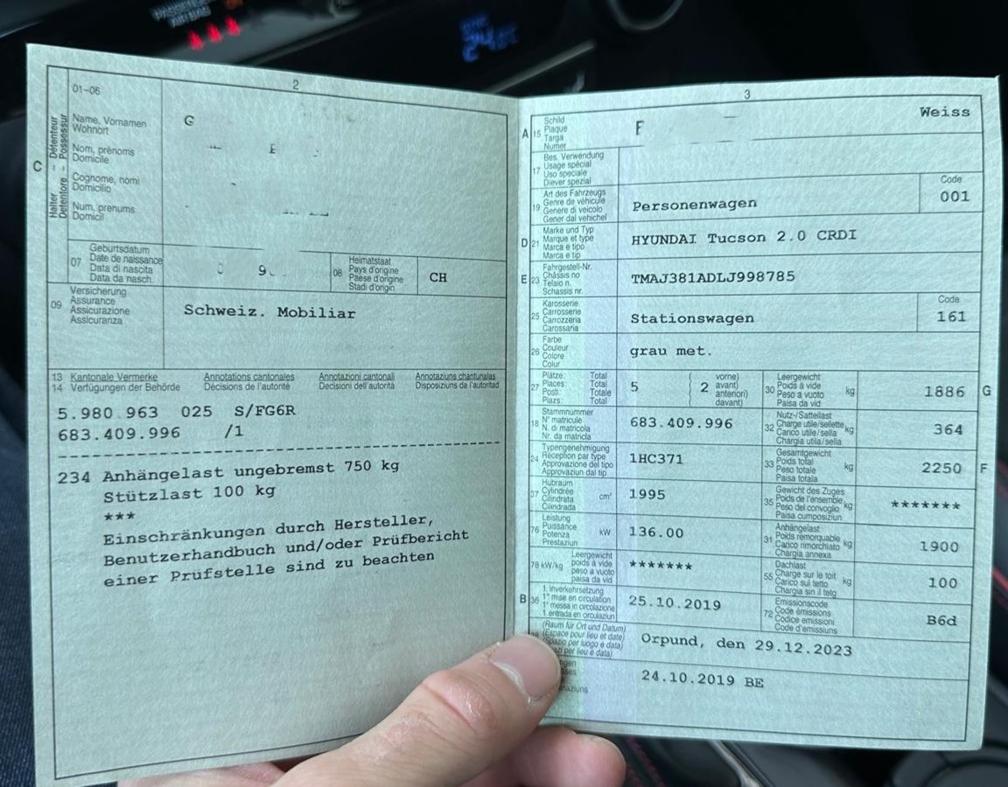 2
01-06
Name, Vornamen
Wohnort
Nom, prénoms
Domicile
Cognome, nomi
Domicilio
Num, prenums
Domicil
C
Halter - Détenteur
Detentore - Possessur
G
E
07
Geburtsdatum
Date de naissance
Data di nascita
Data da nasch.
9.
08
Heimatstaat
Pays d'origine
Paese d'origine
Stadi d'origin
CH
09
Versicherung
Assurance
Assicurazione
Assicuranza
Schweiz. Mobiliar
13 Kantonale Vermerke Annotations cantonales Annotazioni cantonali Annotaziuns chantunalas
14 Verfügungen der Behörde Décisions de l'autorité Decisioni dell'autorità Disposiziuns da l'autoritad
5.980 963 025 S/FG6R
683.409.996 /1
234 Anhängelast ungebremst 750 kg
Stützlast 100 kg
***
Einschränkungen durch Hersteller,
Benutzerhandbuch und/oder Prüfbericht
einer Prüfstelle sind zu beachten
3
A 15
Schild
Plaque
Targa
Numer
F
Weiss
17
Bes. Verwendung
Usage spécial
Uso speciale
Diever spezial
19
Art des Fahrzeugs
Genre de véhicule
Genere di veicolo
Gener dal vehichel
Personenwagen
Code
001
D 21
Marke und Typ
Marque et type
Marca e tipo
Marca e tip
HYUNDAI Tucson 2.0 CRDI
E 23
Fahrgestell-Nr.
Châssis no
Telaio n.
Schassis nr.
TMAJ381ADLJ998785
25
Karosserie
Carrosserie
Carrozzeria
Carossaria
Stationswagen
Code
161
26
Farbe
Couleur
Colore
Colur
grau met.
27
Plätze: Total
Places: Total
Posti: Totale
Plazs: Total
5
2
vorne)
avant)
anteriori)
davant)
30
Leergewicht
Poids à vide
Peso a vuoto
Paisa da vid
kg
1886
G
18
Stammnummer
N° matricule
N. di matricola
Nr. da matricla
683.409.996
32
Nutz-/Sattellast
Charge utile/sellette
Carico utile/sella
Chargia utila/sella
kg
364
24
Typengenehmigung
Réception par type
Approvazione del tipo
Approvaziun dal tip
1HC371
33
Gesamtgewicht
Poids total
Peso totale
Paisa totala
kg
2250
F
37
Hubraum
Cylindrée
Cilindrata
Cilindrada
cm³
1995
35
Gewicht des Zuges
Poids de l'ensemble
Peso del convoglio
Paisa cumposiziun
kg
*******
76
Leistung
Puissance
Potenza
Prestaziun
kW
136.00
31
Anhängelast
Poids remorquable
Carico rimorchiato
Chargia annexa
kg
1900
78 kW/kg
Leergewicht
poids à vide
peso a vuoto
paisa da vid
*******
55
Dachlast
Charge sur le toit
Carico sul tetto
Chargia sin il tetg
kg
100
B 36
1. Inverkehrsetzung
1re mise en circulation
1a messa in circolazione
1. entrada en circulaziun
25.10.2019
72
Emissionscode
Code émissions
Codice emissioni
Code d'emissiuns
B6d
(Raum für Ort und Datum)
(Espace pour lieu et date)
Orpund, den 29.12.2023
24.10.2019 BE